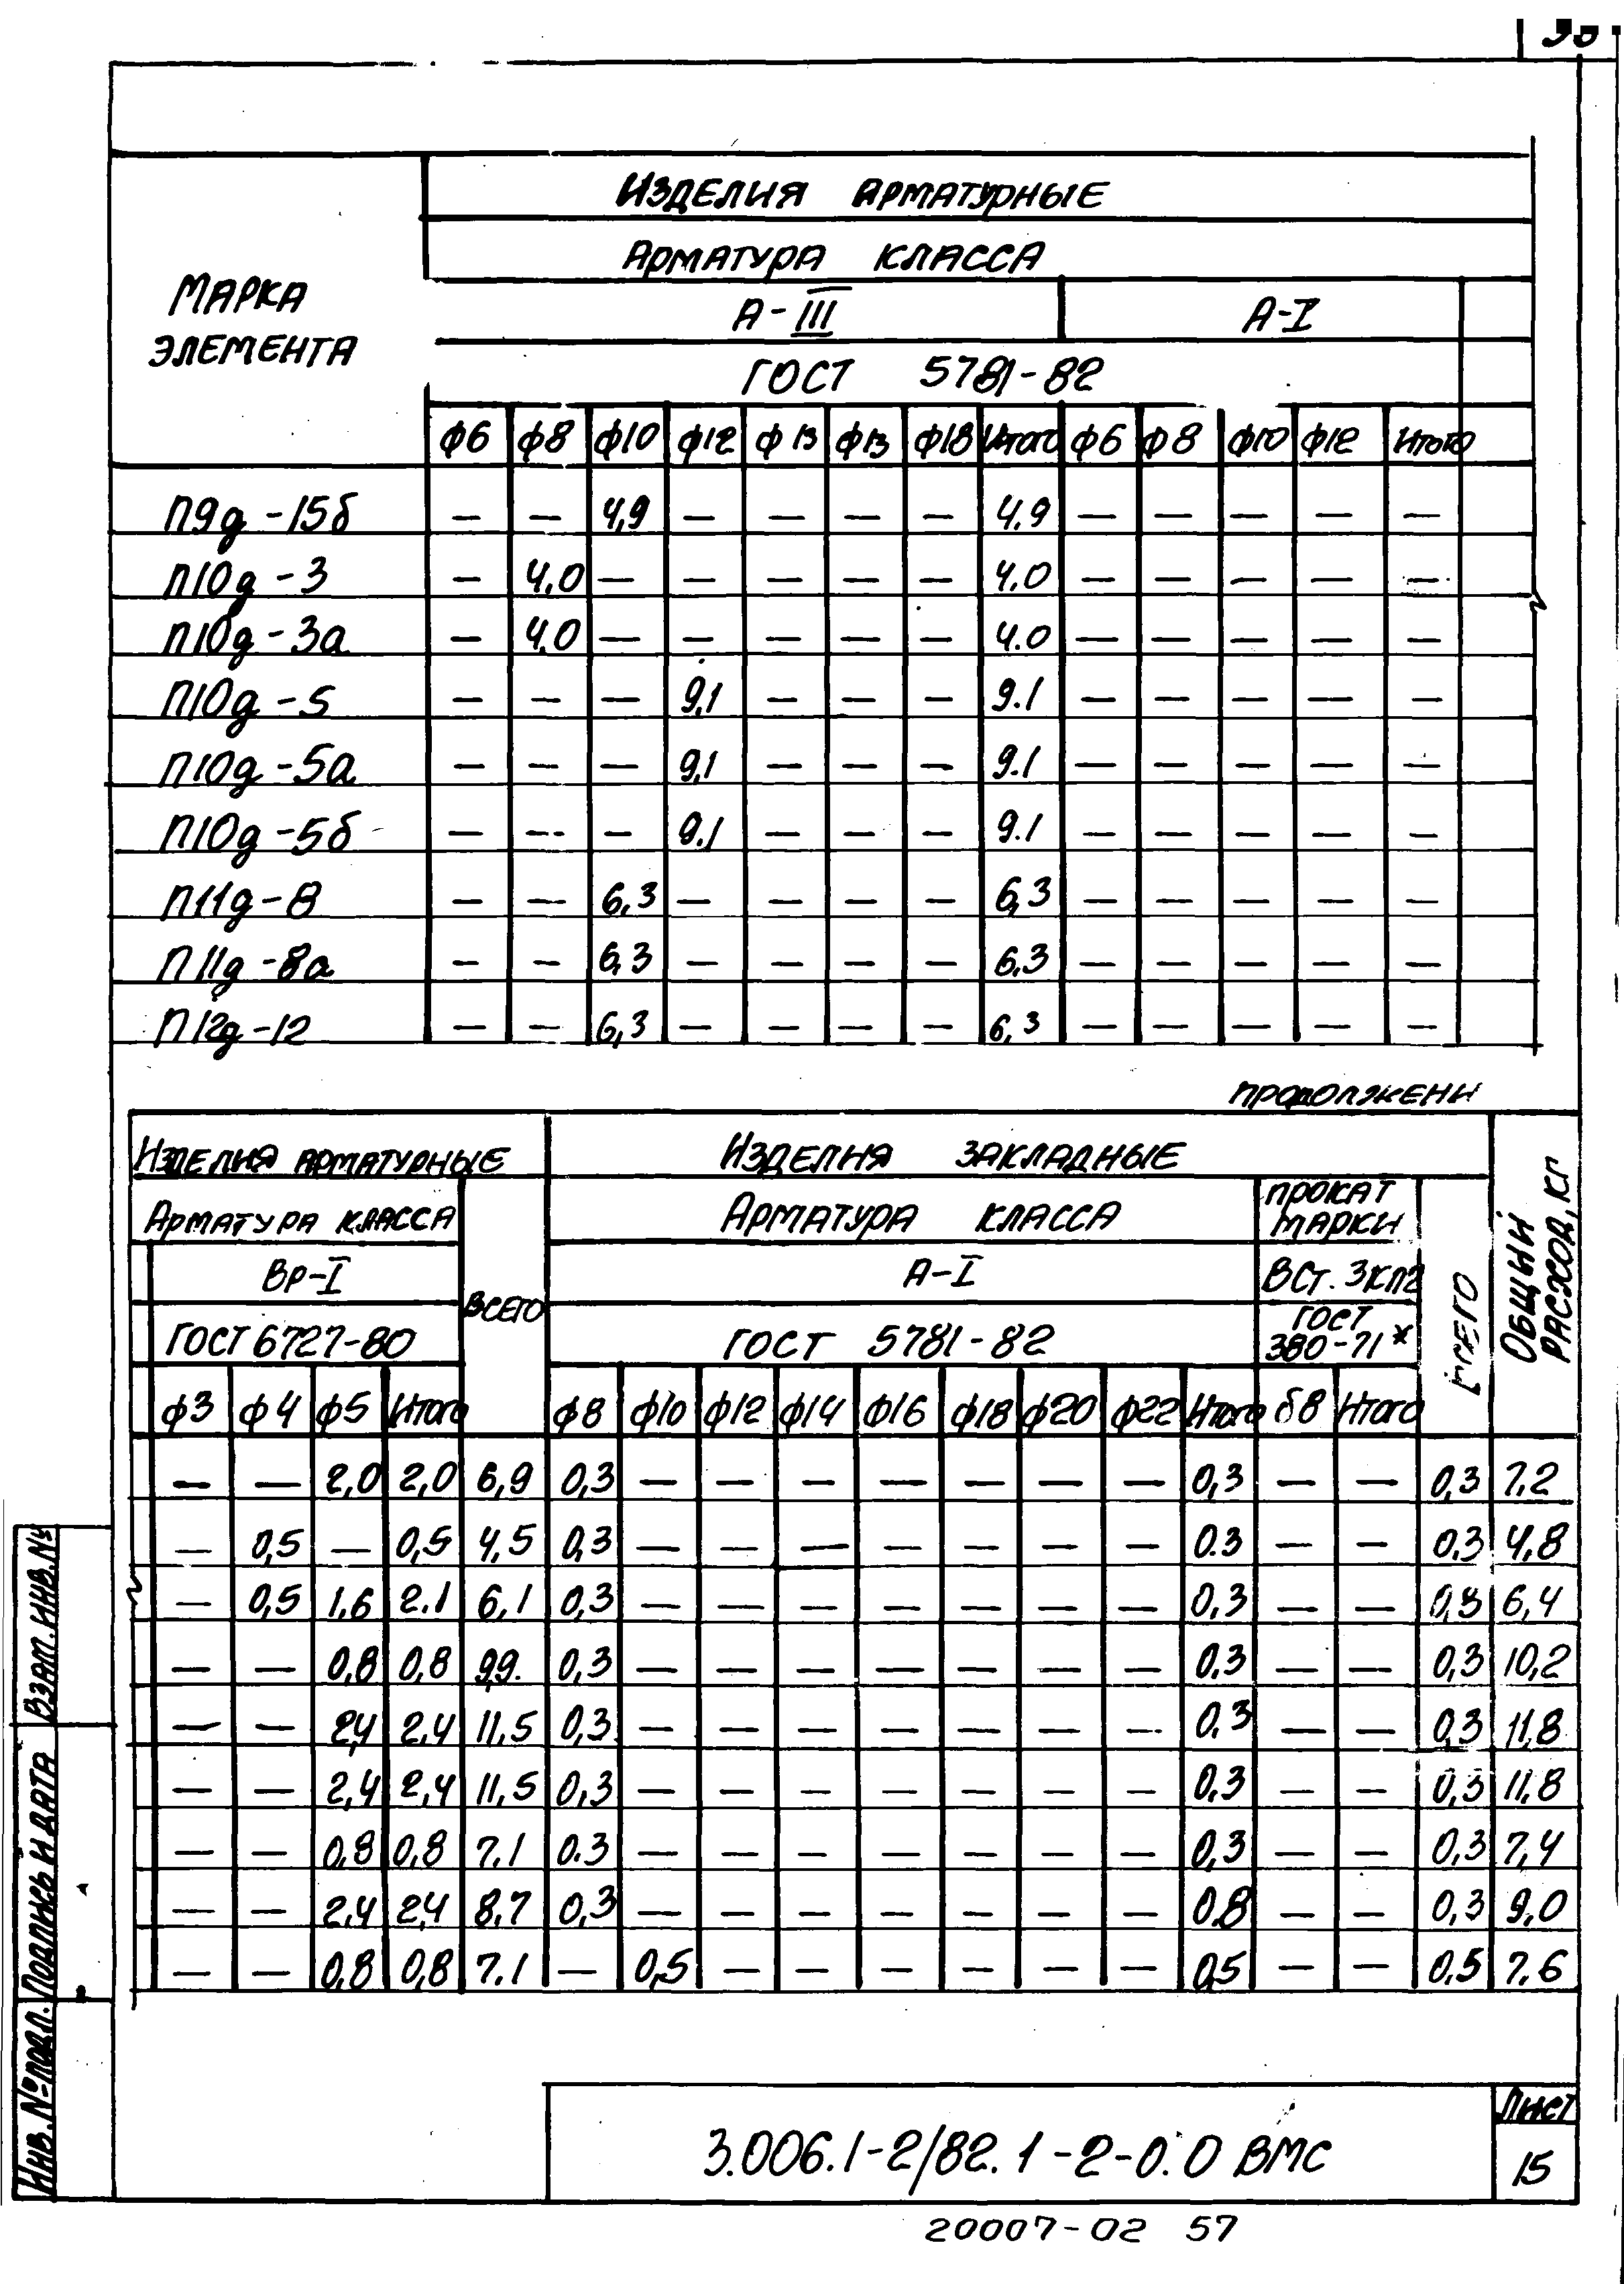 ИЗДЕЛИЯ АРМАТУРНЫЕ
АРМАТУРА КЛАССА
МАРКА ЭЛЕМЕНТА
А-III А-I
ГОСТ 5781-82
ф6 ф8 ф10 ф12 ф13 ф13 ф18 Итого ф6 ф8 ф10 ф12 Итого
П9д-15б — — 4,9 — — — — 4.9 — — — — —
П10д-3 — 4.0 — — — — — 4.0 — — — — —
П10д-3а — 4.0 — — — — — 4.0 — — — — —
П10д-5 — — — 9,1 — — — 9.1 — — — — —
П10д-5а — — — 9,1 — — — 9.1 — — — — —
П10д-5б — — — 9.1 — — — 9.1 — — — — —
П11д-8 — — 6,3 — — — — 6,3 — — — — —
П11д-8а — — 6,3 — — — — 6.3 — — — — —
П12д-12 — — 6,3 — — — — 6,3 — — — — —
ПРОДОЛЖЕНИ
ИЗДЕЛИЯ АРМАТУРНЫЕ ИЗДЕЛИЯ ЗАКЛАДНЫЕ ОБЩИЙ РАСХОД, КГ
АРМАТУРА КЛАССА ВСЕГО АРМАТУРА КЛАССА ПРОКАТ МАРКИ ВСЕГО
Вр-I А-I ВСт.3кп2
ГОСТ 6727-80 ГОСТ 5781-82 ГОСТ 380-71*
ф3 ф4 ф5 Итого ф8 ф10 ф12 ф14 ф16 ф18 ф20 ф22 Итого δ8 Итого
— — 2,0 2,0 6,9 0,3 — — — — — — — 0,3 — — 0,3 7.2
— 0,5 — 0,5 4,5 0,3 — — — — — — — 0.3 — — 0.3 4,8
— 0,5 1,6 2.1 6,1 0,3 — — — — — — — 0,3 — — 0,3 6,4
— — 0,8 0,8 9,9. 0,3 — — — — — — — 0,3 — — 0,3 10,2
— — 2,4 2,4 11,5 0,3 — — — — — — — 0,3 — — 0,3 11,8
— — 2,4 2,4 11,5 0,3 — — — — — — — 0.3 — — 0,3 11,8
— — 0,8 0,8 7.1 0.3 — — — — — — — 0,3 — — 0,3 7,4
— — 2.4 2,4 8.7 0,3 — — — — — — — 0,8 — — 0,3 9,0
— — 0,8 0,8 7.1 — 0,5 — — — — — — 0,5 — — 0,5 7.6
ИНВ.№ПОДЛ. ПОДПИСЬ И ДАТА ВЗАМ.ИНВ.№
3.006.1-2/82.1-2-0.0 ВМС
ЛИСТ
15
20007-02 57